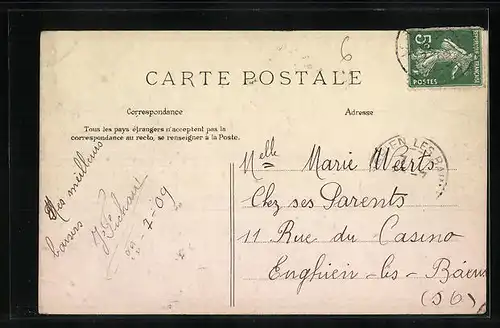 6
5c
POSTES
CARTE POSTALE
Correspondance
Tous les pays étrangers n'acceptent pas la
correspondance au recto, se renseigner à la Poste.
Mes meilleurs
baisers
-2-09
Adresse
EN LES BAINS
Melle Marie Weerts
Chez ses Parents
11 Rue du Casino
Enghien-les-Bains
(S O)